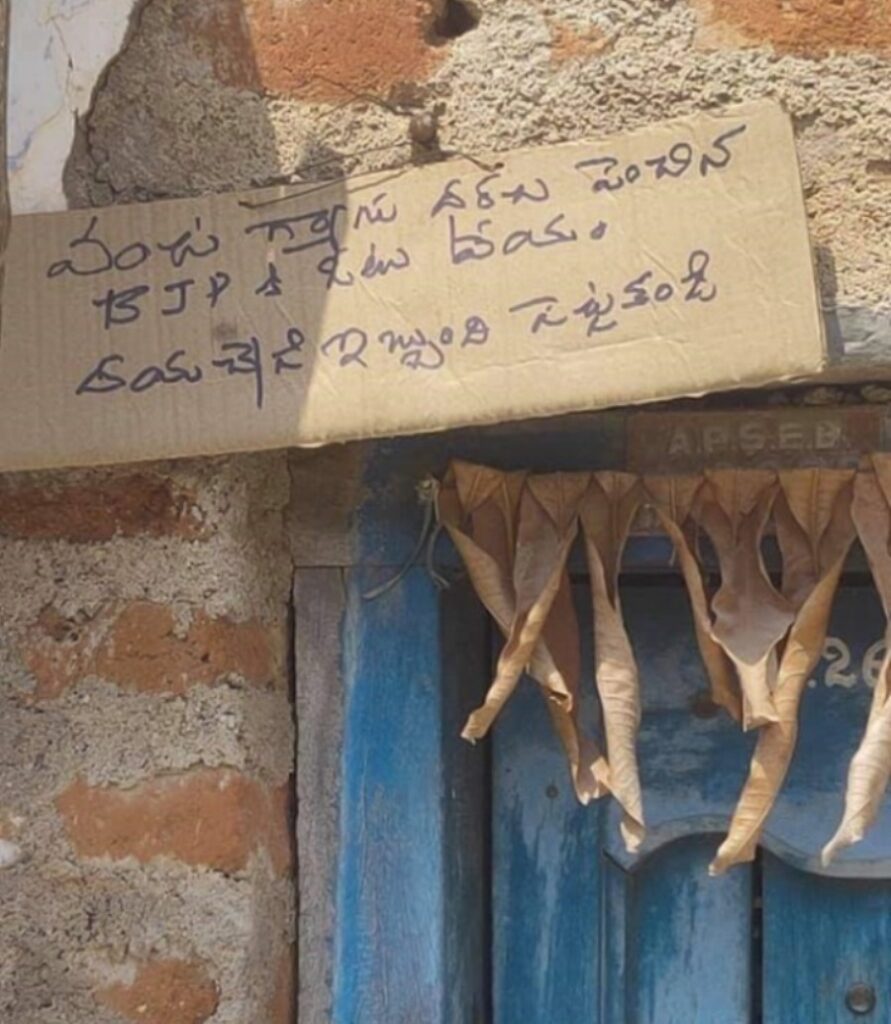 వంట గ్యాసు ధరలు పెంచిన
BJP కి ఓటు వేయం.
దయచేసి ఇబ్బంది పెట్టకండి
A.P.S.E.B.
26